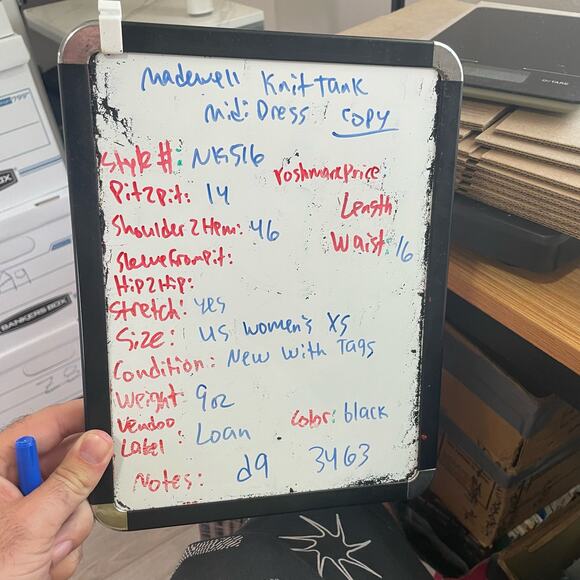 Madewell Knit Tank
Midi Dress copy
Style #: NG516
Pit2pit: 14
PoshmarkPrice
Shoulder2Hem: 46
Length
SleeveFromPit:
Waist: 16
Hip2Hip:
Stretch: yes
Size: US Women's XS
Condition: New With Tags
Weight: 9oz
Color: black
Vendoo
Label: Loan
Notes: d9 3463
BANKERS BOX